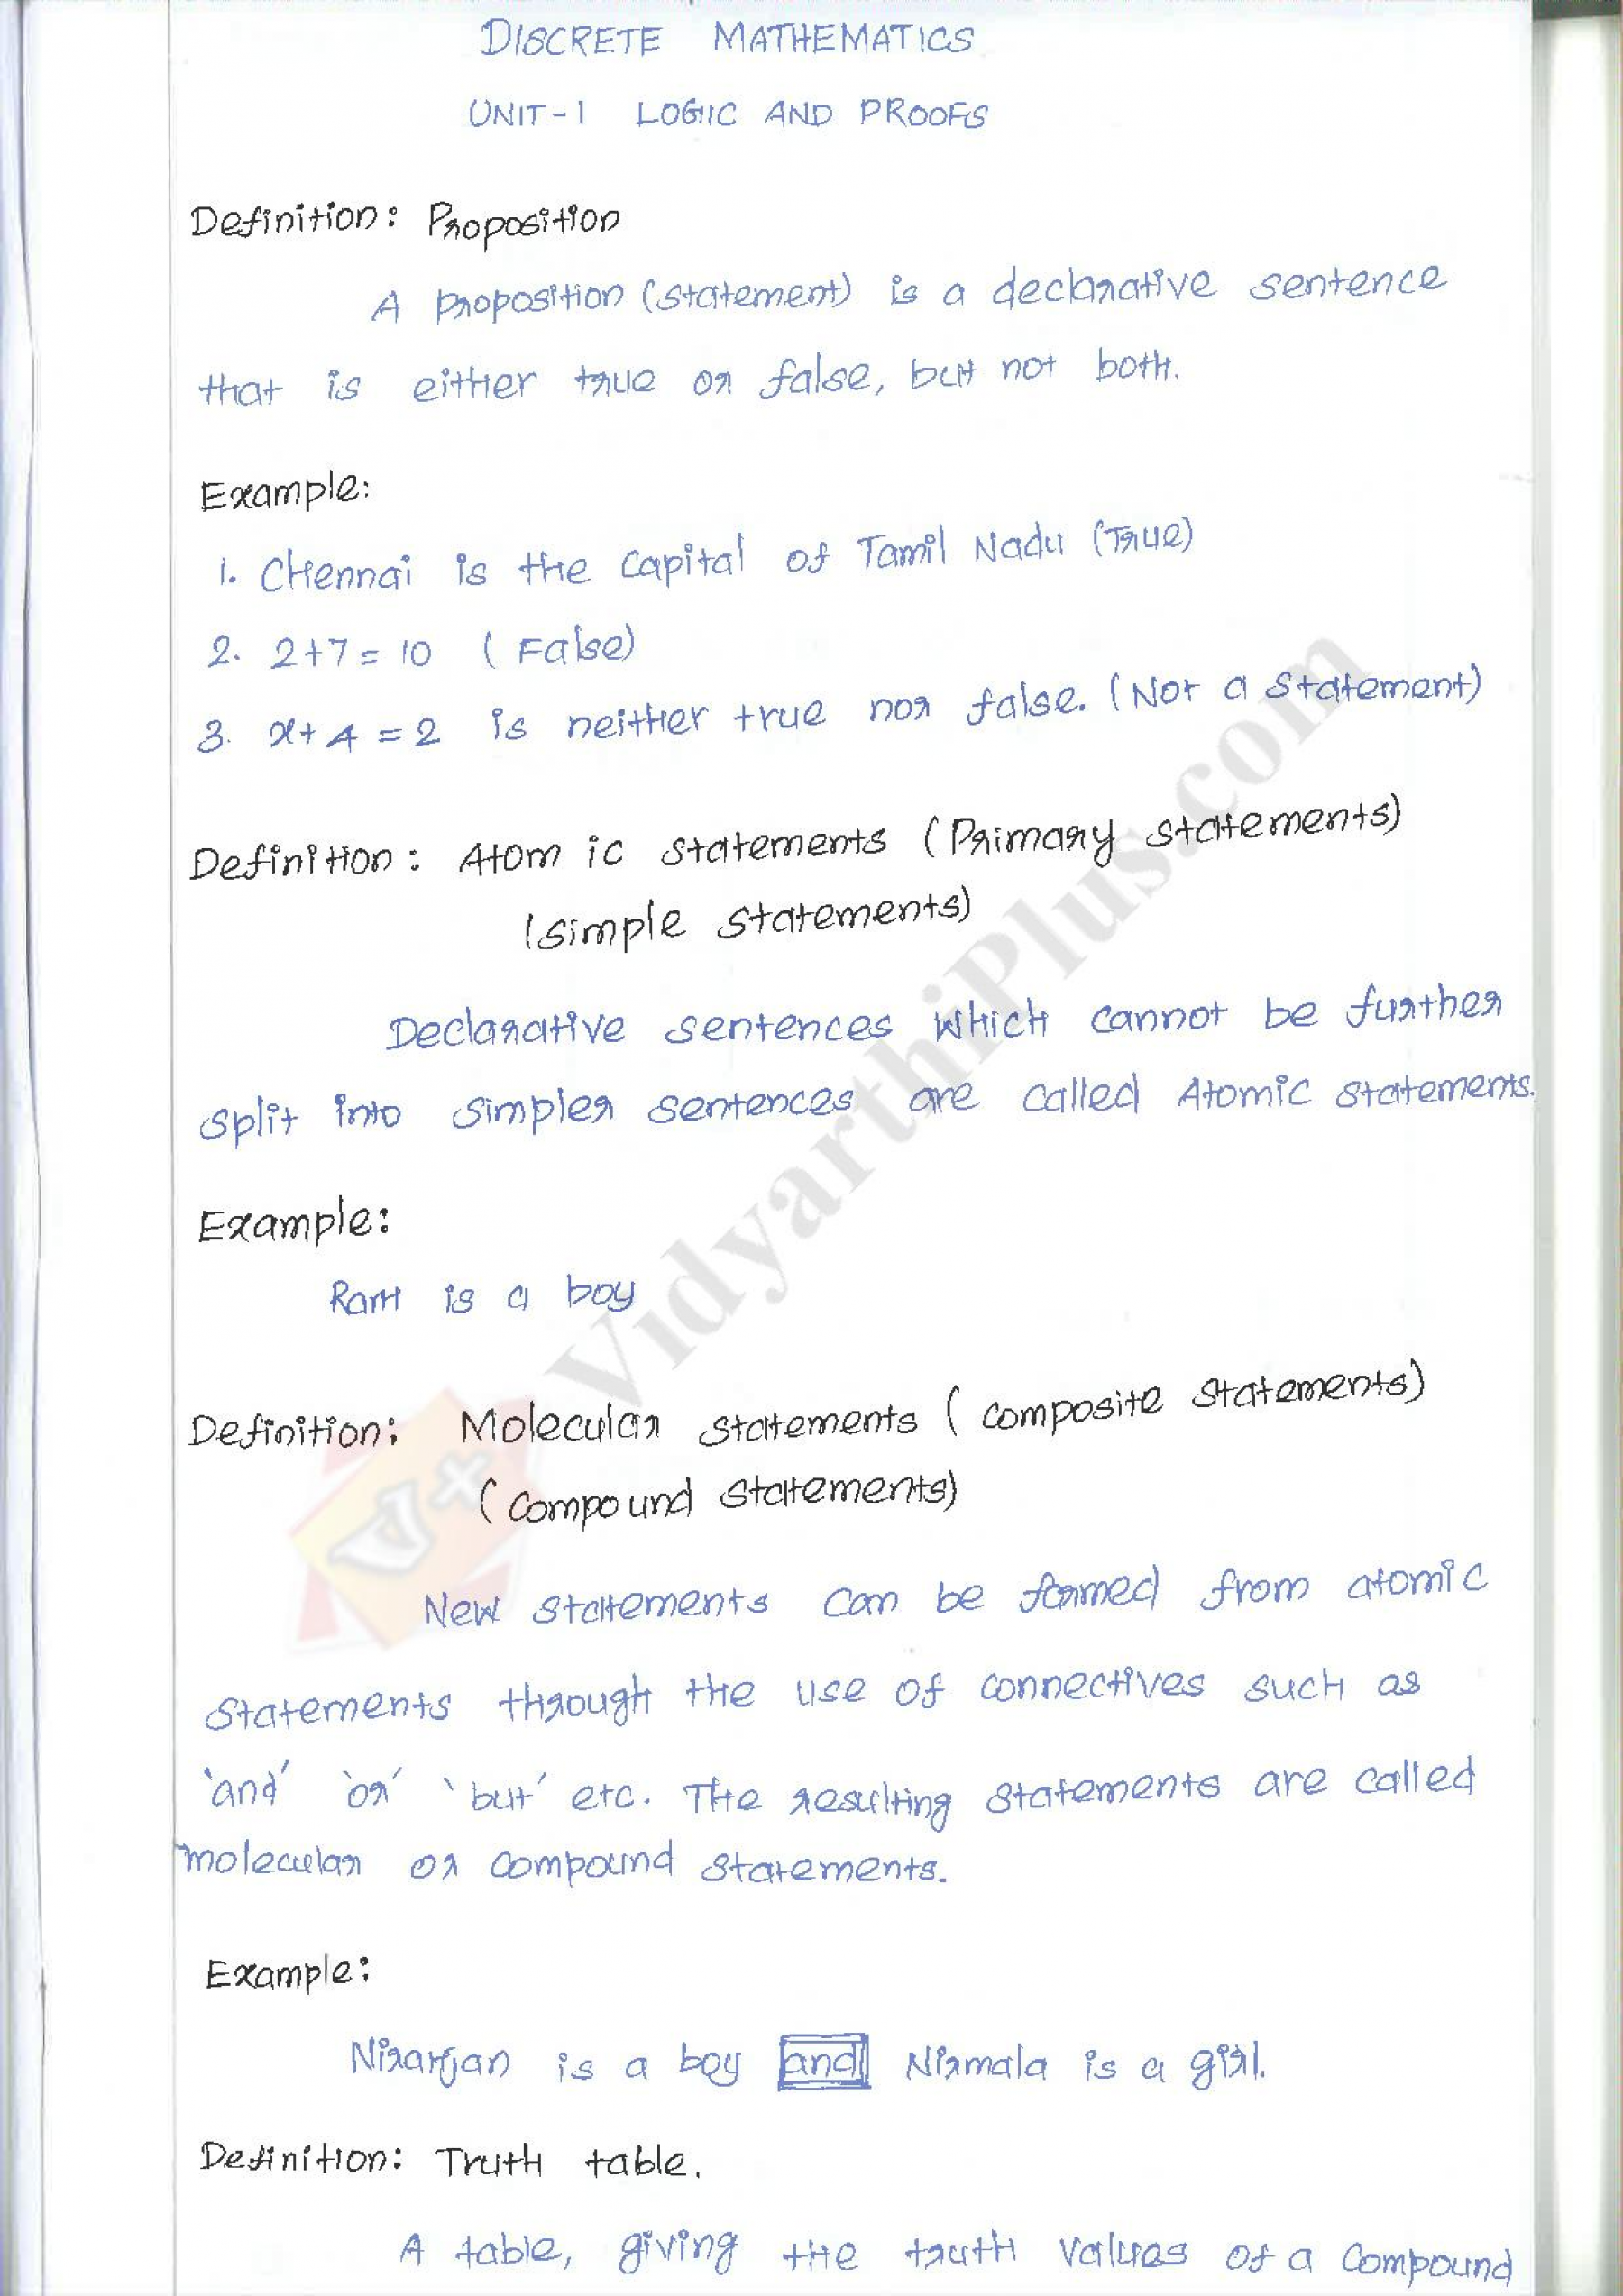 DISCRETE MATHEMATICS
UNIT-1 LOGIC AND PROOFS
Definition: Proposition
A proposition (statement) is a declarative sentence
that is either true or false, but not both.
Example:
1. Chennai is the capital of Tamil Nadu (True)
2. 2+7=10 (False)
3. x+4=2 is neither true nor false. (Not a statement)
Definition: Atomic statements (Primary statements)
(simple statements)
Declarative sentences which cannot be further
split into simpler sentences are called Atomic statements.
Example:
Ram is a boy
Definition: Molecular statements (composite statements)
(compound statements)
New statements can be formed from atomic
statements through the use of connectives such as
'and' 'or' 'but' etc. The resulting statements are called
molecular or compound statements.
Example:
Niranjan is a boy and Nirmala is a girl.
Definition: Truth table.
A table, giving the truth values of a compound
VidyarthiPlus.com
V+